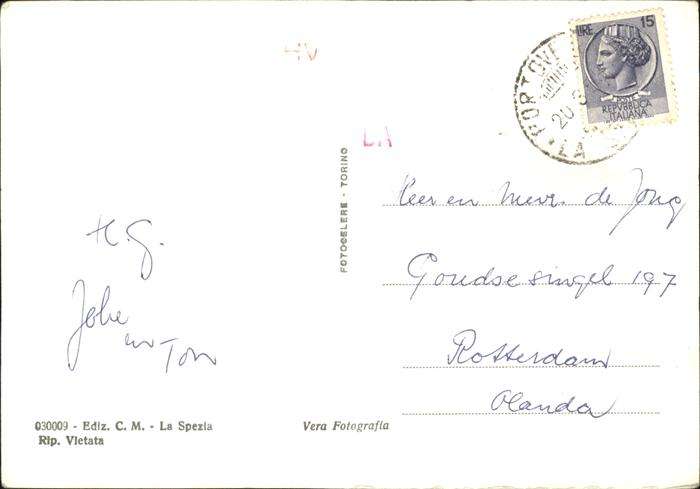 H.G.
Joke
en Ton
030009 - Ediz. C. M. - La Spezia
Rip. Vietata
Vera Fotografia
FOTOCELERE - TORINO
LIRE 15
POSTE
REPVBBLICA
ITALIANA
PORTOVE
20
LA
Heer en Mevr. de Jong
Goudsesingel 197
Rotterdam
Olanda